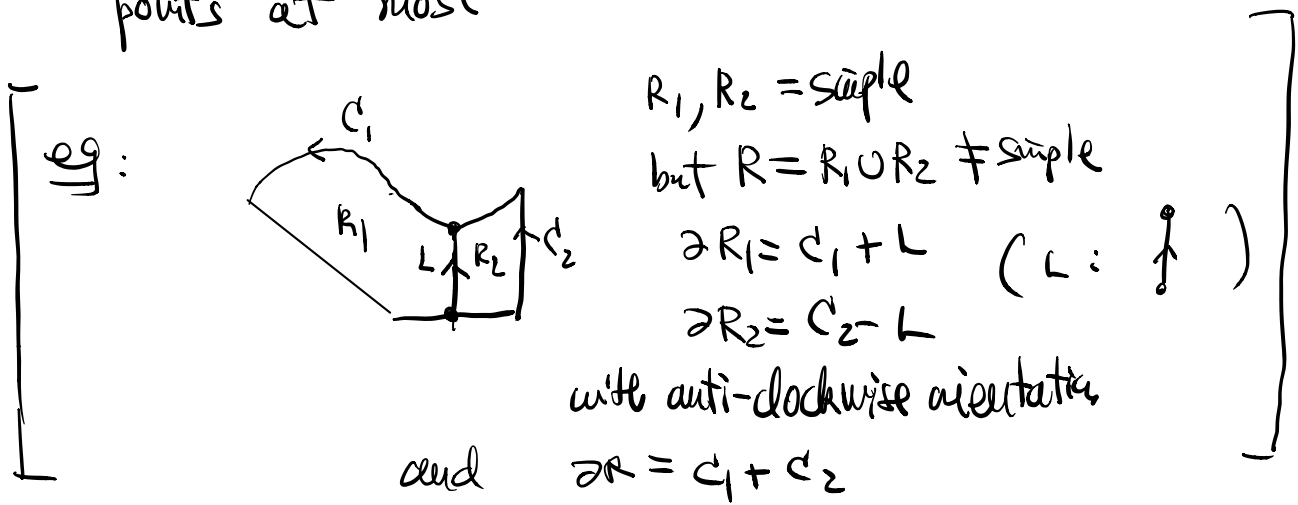 points at most
eg:
C₁
R₁
L
R₂
C₂
R₁, R₂ = simple
but R = R₁ ∪ R₂ ≠ simple
∂R₁ = C₁ + L
(L: )
∂R₂ = C₂ - L
with anti-clockwise orientation
and ∂R = C₁ + C₂